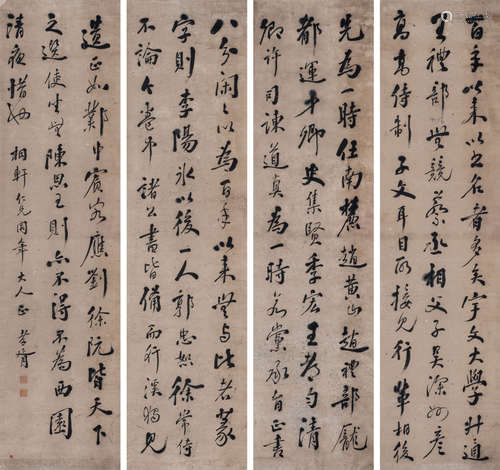 百年以来以書名者多矣宇文大學叔通
王禮部無競蔡丞相父子吳深州彦
高高待制子文耳目所接見行軰相後
先為一時任南麓趙黃山趙禮部龐
都運才卿史集賢季宏王都勾清
卿許司諫道真為一時若黨承旨正書
八分閑々以為百年以来無與比者篆
字則李陽冰以後一人郭忠恕徐常侍
不論今卷中諸公書皆備而竹溪獨見
遺正如鄴中賓客應劉徐阮皆天下
之選使坐無陳思王則亦不得不為西園
清夜惜也 桐軒仁兄同年大人正 孝胥